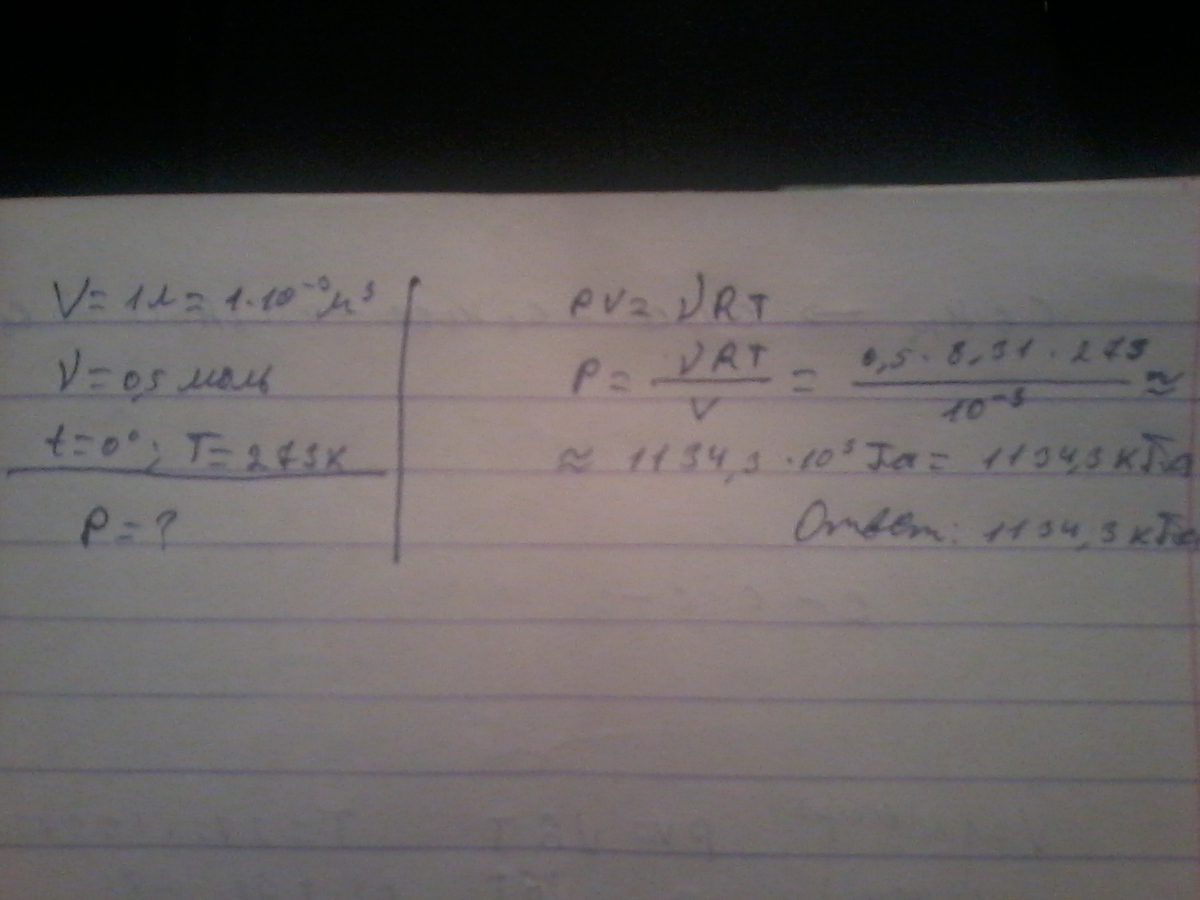 V = 1л = 1·10⁻³ м³
ν = 0,5 моль
t = 0°; T = 273К
P = ?
PV = νRT
P = νRT / V = 0,5 · 8,31 · 273 / 10⁻³ ≈
≈ 1134,3 · 10³ Па = 1134,3 кПа
Ответ: 1134,3 кПа